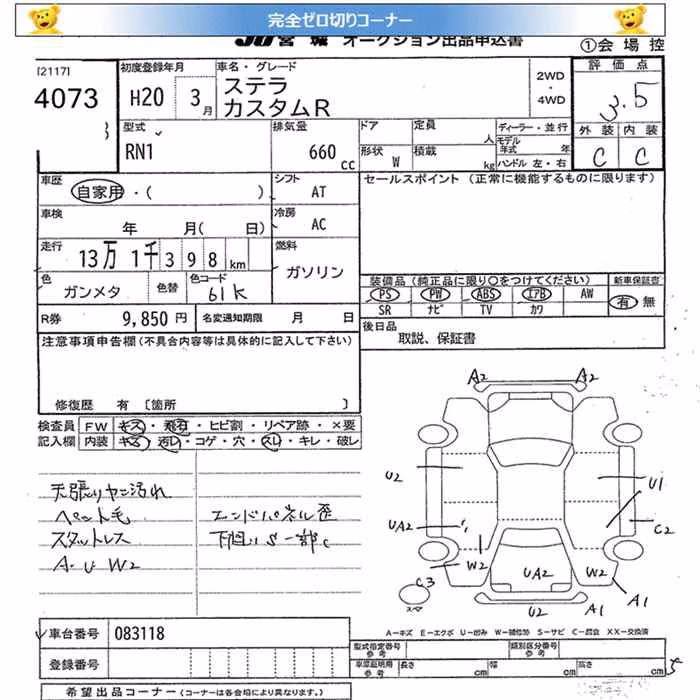 完全ゼロ切りコーナー
JU宮城 オークション出品申込書 ①会場控
[2117]
4073
初度登録年月
H20 3月
車名・グレード
ステラ
カスタムR
2WD
・
4WD
評価点
3.5
外装 内装
C C
型式
RN1
排気量
660 cc
ドア 定員 人
形状 W 積載 kg
ディーラー・並行
モデル年式 年
ハンドル 左・右
車歴
自家用・( )
シフト
AT
セールスポイント (正常に機能するものに限ります)
車検
年 月( 日)
冷房
AC
走行
13万1千398km
燃料
ガソリン
色
ガンメタ
色替
色コード
61K
装備品(純正品に限り○をつけてください)
PS PW ABS エアB AW
SR ナビ TV カワ
新車保証書
有 無
R券 9,850円 名変通知期限 月 日
後日品
取説、保証書
注意事項申告欄(不具合内容等は具体的に記入して下さい)
修復歴 有 [箇所 ]
検査員 FW キズ・飛石・ヒビ割・リペア跡・×要
記入欄 内装 キズ・汚れ・コゲ・穴・スレ・キレ・破レ
天張りヤニ汚れ
ペット毛
スタットレス
A・U W2
エンドパネル歪
下回りS一部C
A2 A2
U2 U1
UA2 C2
W2 UA2 W2
C3 A1
スペア
U2 A1
A-キズ E-エクボ U-凹み W-補修跡 S-サビ C-腐食 XX-交換済
車台番号 083118
登録番号
型式指定番号 参考 類別区分番号 参考
車庫証明用 参考 長さ cm 幅 cm 高さ cm
5
希望出品コーナー(コーナーは各会場により異なります。)